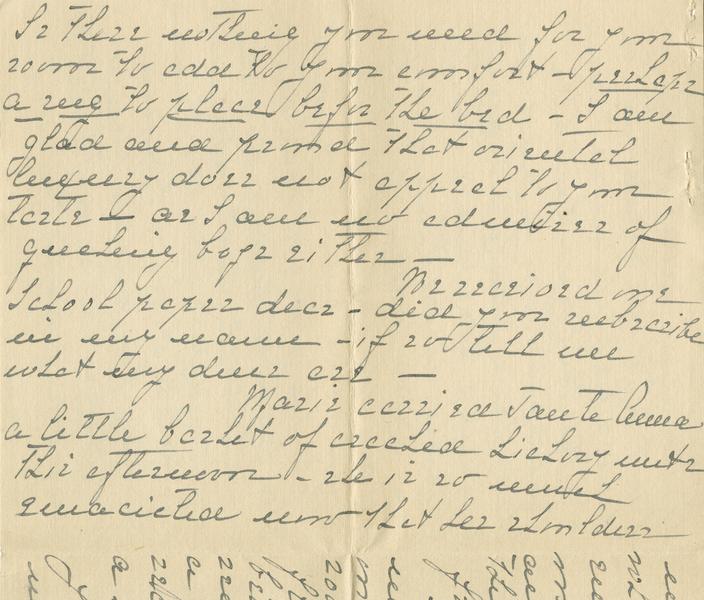 Is there nothing you need for your
room to add to your comfort - perhaps
a rug to place before the bed - I am
glad and proud that oriental
luxury does not appeal to your
taste - as I am no admirer of
gushing boys either -
We received one
School paper dear - did you subscribe
in my name - if so tell me
what my dues are -
Marie carried Tante Emma
a little basket of cracked hickory nuts
this afternoon - she is so much
emaciated now that her shoulders